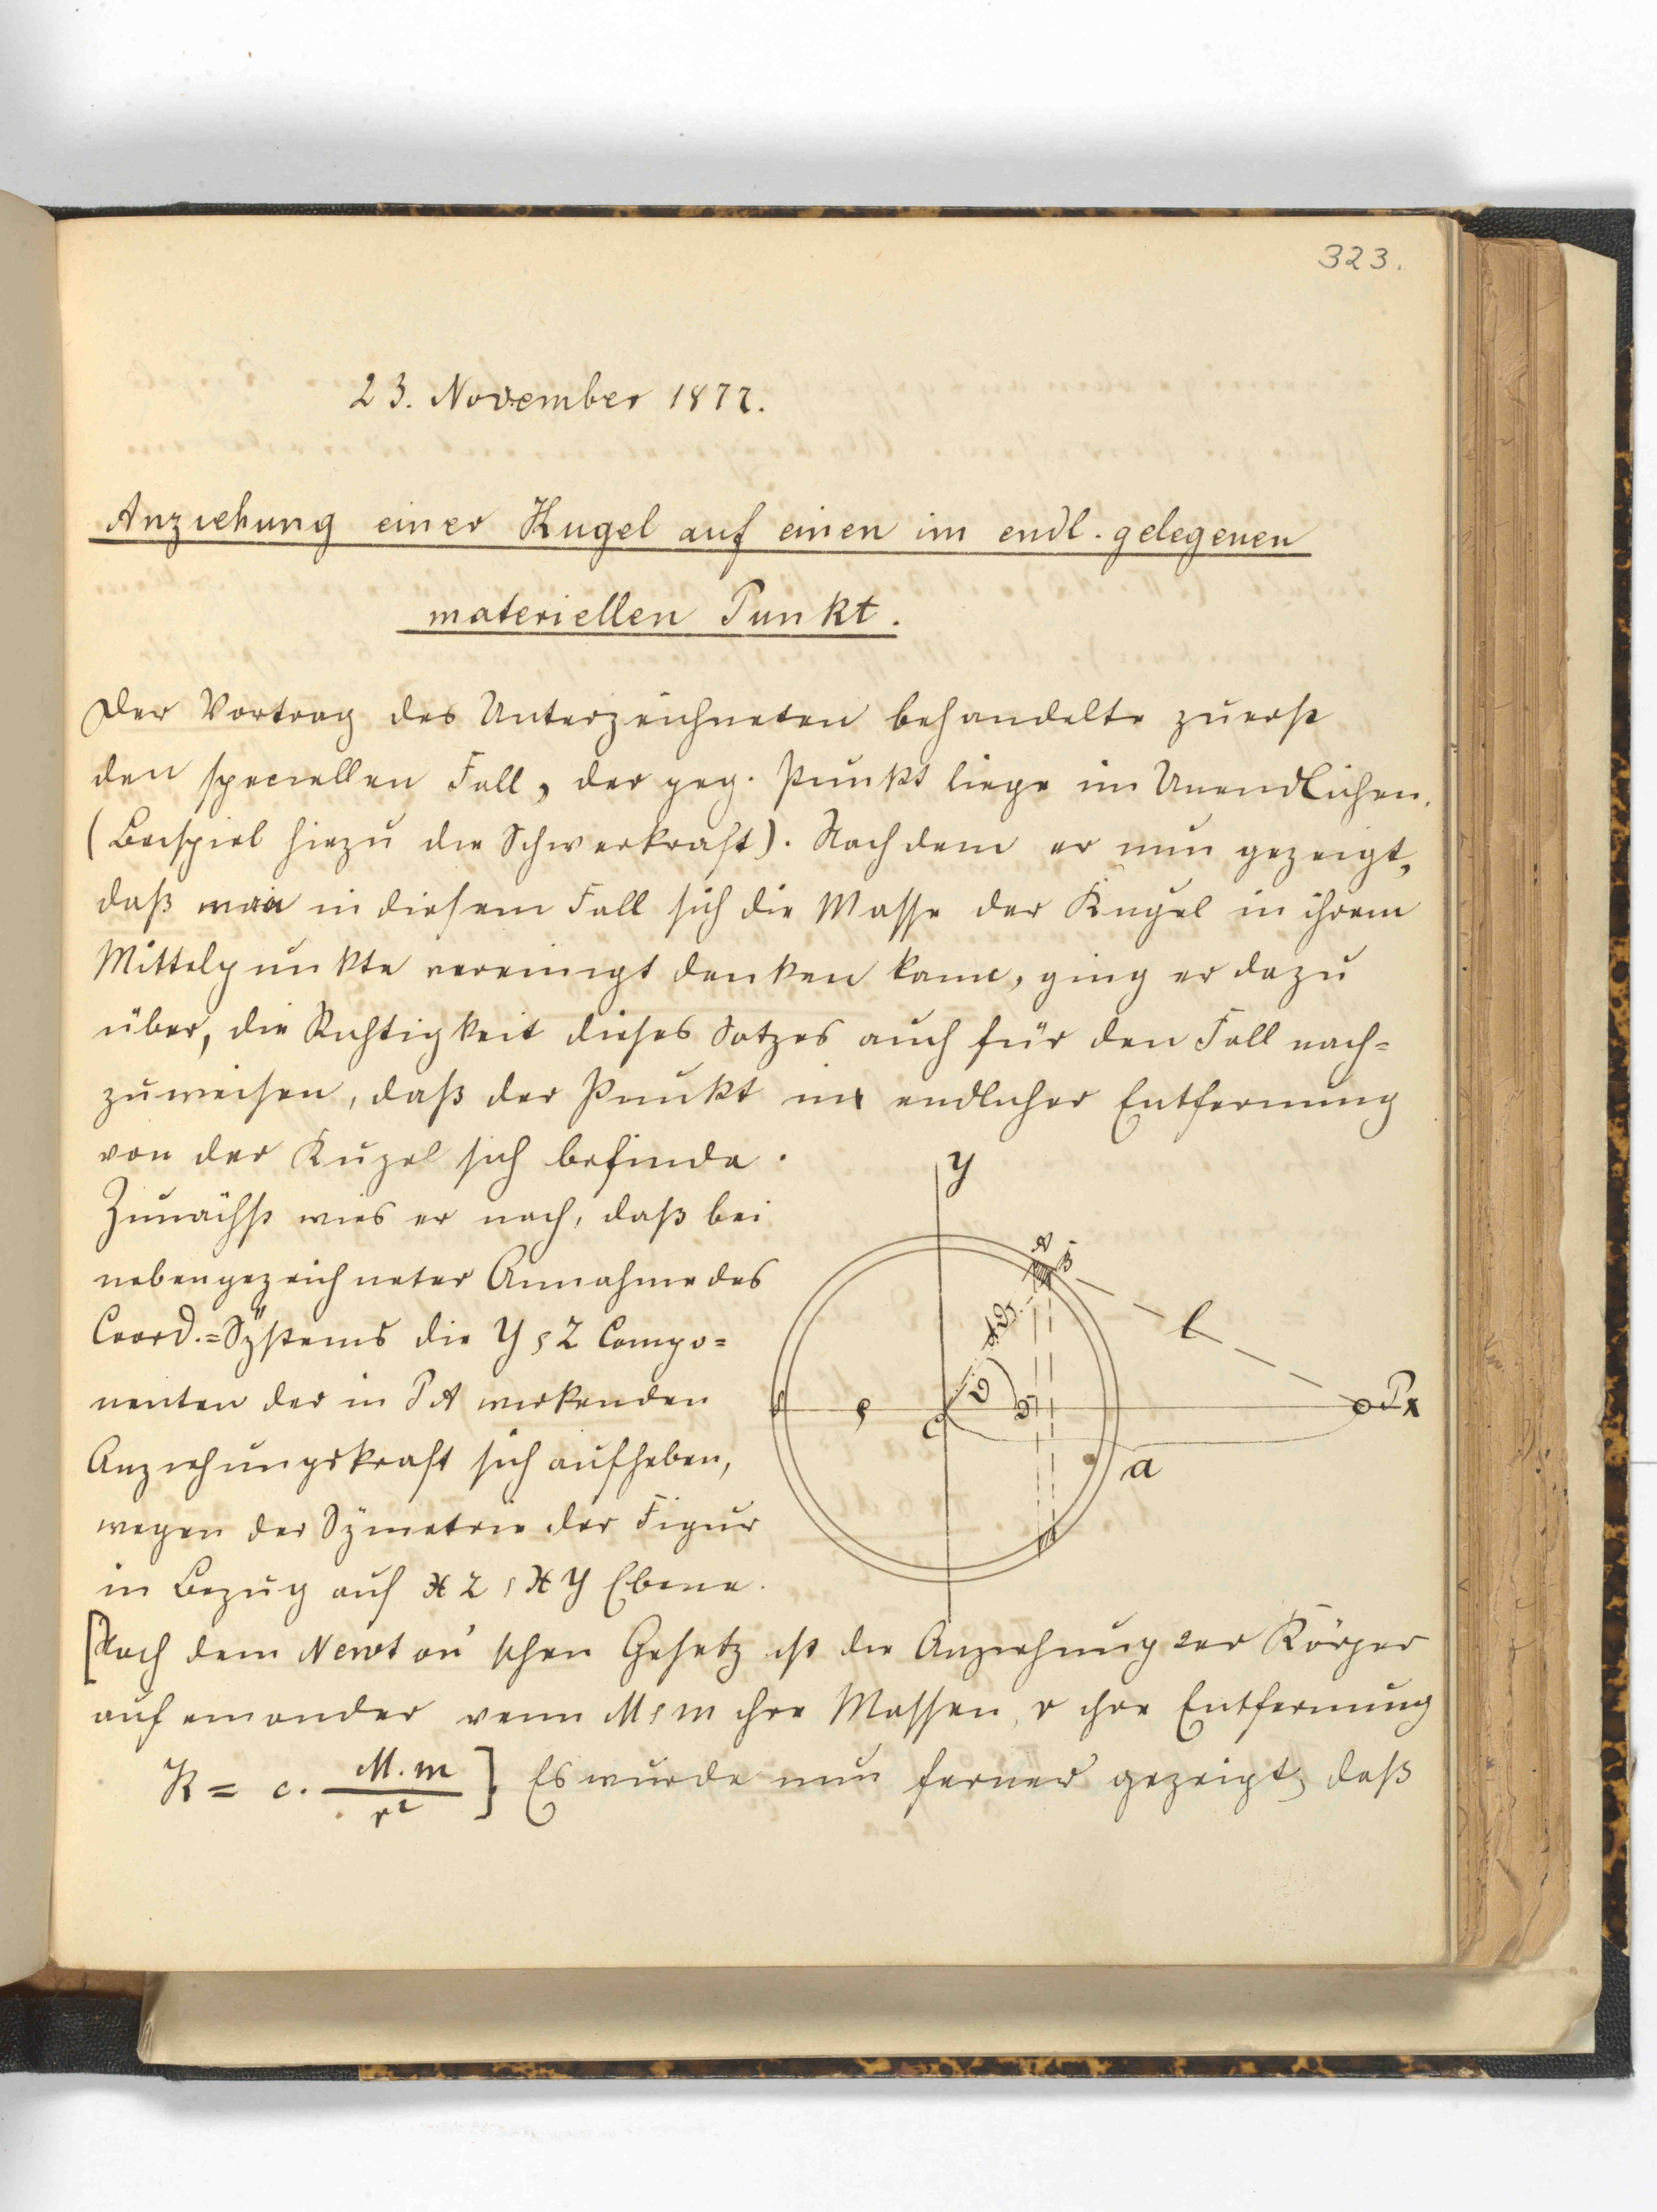 323.
23. November 1877.
Anziehung einer Kugel auf einen im endl. gelegenen
materiellen Punkt.
Der Vortrag des Unterzeichneten behandelte zuerst
den speciellen Fall, der geg. Punkt liege im Unendlichen.
(Beispiel hiezu die Schwerkraft). Nachdem er nun gezeigt,
daß man in diesem Fall sich die Masse der Kugel in ihrem
Mittelpunkte vereinigt denken kann, ging er dazu
über, die Richtigkeit dieses Satzes auch für den Fall nach=
zuweisen, daß der Punkt in endlicher Entfernung
von der Kugel sich befinde.
Zunächst wies er nach, daß bei
nebengezeichneter Annahme des
Coord.=Systems die Y & Z Compo=
nenten der in PA wirkenden
Anziehungskraft sich aufheben,
wegen der Symetrie der Figur
in Bezug auf XZ & XY Ebene.
y
A
B
l
C
D
P x
a
[Nach dem Newton'schen Gesetz ist die Anziehung 2er Körper
auf einander wenn M & m ihre Massen, r ihre Entfernung
K = c. M.m / r²] Es wurde nun ferner gezeigt, daß